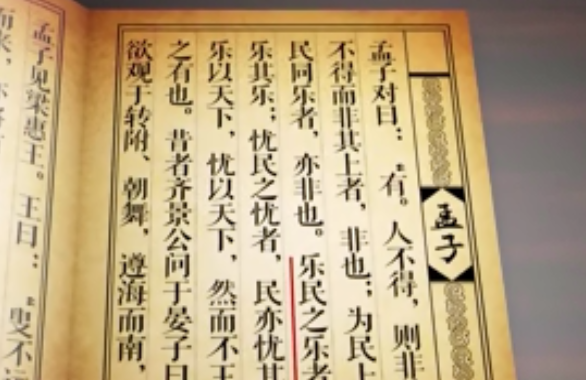 孟子
孟子对曰：“有。人不得，则非
不得而非其上者，非也；为民上
民同乐者，亦非也。乐民之乐者
乐其乐；忧民之忧者，民亦忧其
乐以天下，忧以天下，然而不王
之有也。昔者齐景公问于晏子曰
欲观于转附、朝舞，遵海而南，
孟子见梁惠王。王曰：“叟不远
而来，亦